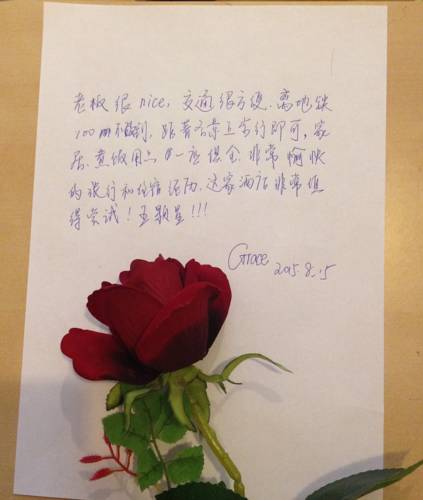 老板很nice，交通很方便，离地铁
100m不到，跟着名景点步行即可，家
居、煮饭用品等一应俱全，非常愉快
的旅行和住宿经历，这家酒店非常值
得尝试！五颗星!!!
Grace
2015.8.15